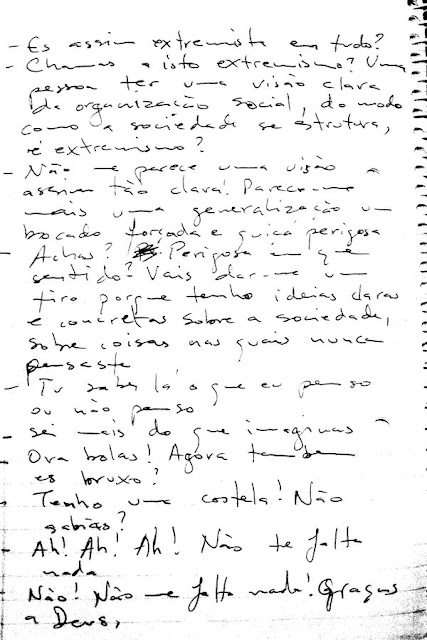 - Es assim extremista em tudo?
- Chamas a isto extremismo? Uma
pessoa ter uma visão clara
da organização social, do modo
como a sociedade se estrutura,
é extremismo?
- Não me parece uma visão
assim tão clara! Parece-me
mais uma generalização um
bocado forçada e quiçá perigosa
- Achas? Perigosa em que
sentido? Vais dar-me um
tiro porque tenho ideias claras
e concretas sobre a sociedade,
sobre coisas nas quais nunca
pensaste
- Tu sabes lá o que eu penso
ou não penso
- sei mais do que imaginas
- Ora bolas! Agora também
és bruxo?
- Tenho uma costela! Não
sabias?
- Ah! Ah! Ah! Não te falta
nada
- Não! Não me falta nada! Graças
a Deus,